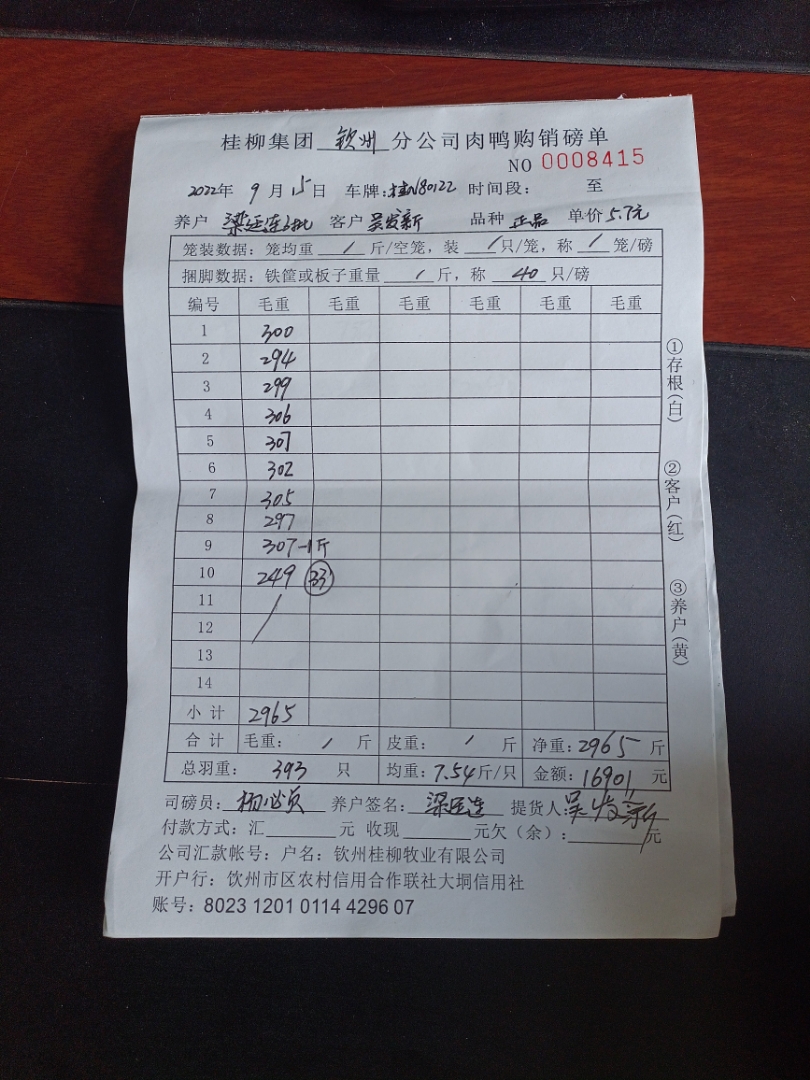 桂柳集团 钦州 分公司肉鸭购销磅单
NO 0008415
2022年 9 月 15日 车牌:桂N80122 时间段: 至
养户 梁廷连3批 客户 吴发新 品种 正品 单价 5.7元
笼装数据: 笼均重 / 斤/空笼, 装 / 只/笼, 称 / 笼/磅
捆脚数据: 铁筐或板子重量 / 斤, 称 40 只/磅
编号 毛重 毛重 毛重 毛重 毛重 毛重
1 300
2 294
3 299
4 306
5 307
6 302
7 305
8 297
9 307-1斤
10 249 33
11 /
12
13
14
小 计 2965
合 计 毛重: / 斤 皮重: / 斤 净重: 2965 斤
总羽重: 393 只 均重: 7.54斤/只 金额: 16901 元
司磅员: 养户签名: 提货人: 吴发新
付款方式: 汇 元 收现 元欠(余): 元
公司汇款帐号: 户名: 钦州桂柳牧业有限公司
开户行: 钦州市区农村信用合作联社大垌信用社
账号: 8023 1201 0114 4296 07
①存根(白)
②客户(红)
③养户(黄)